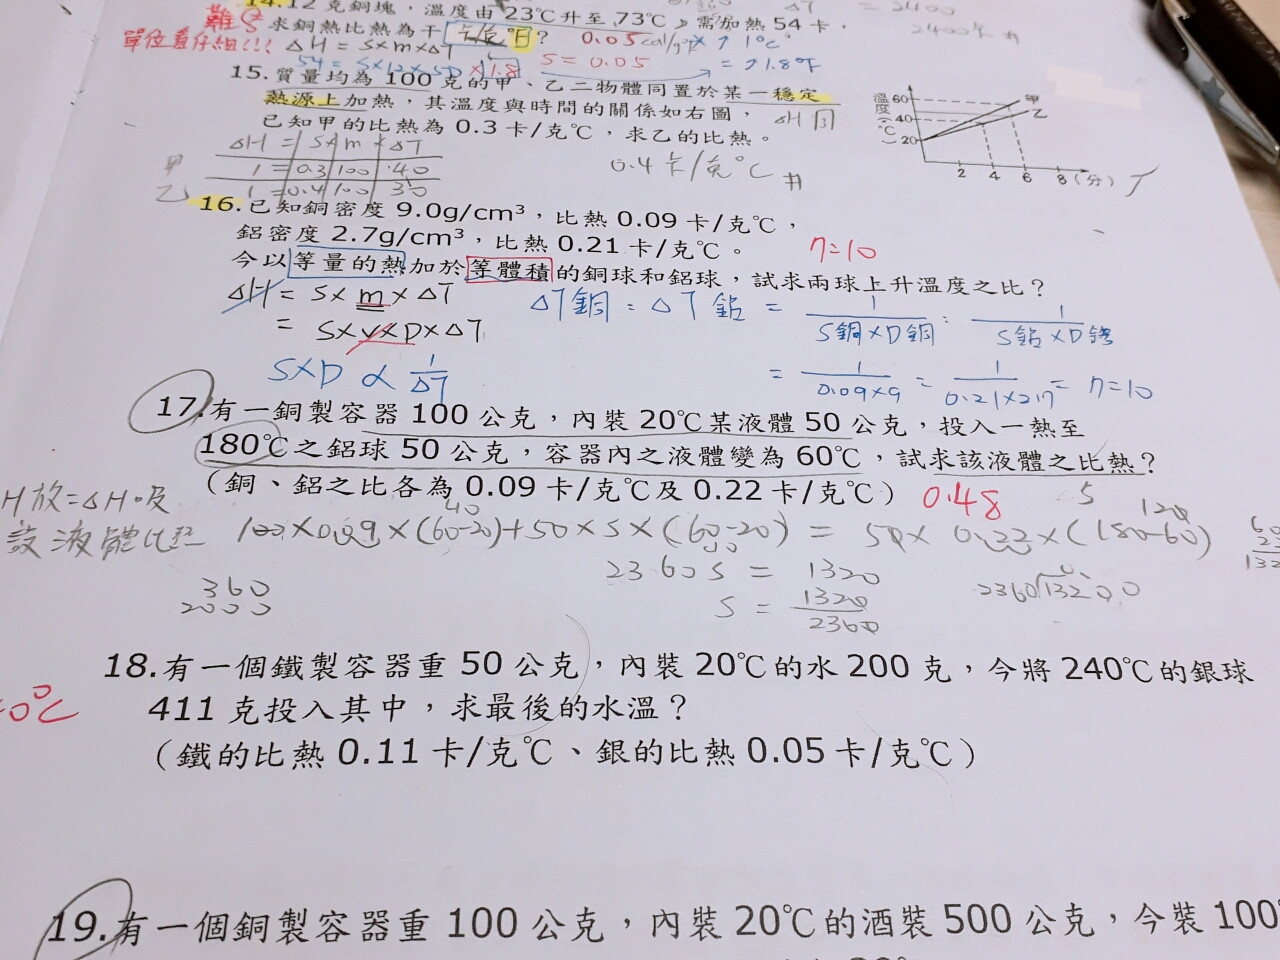 14.12克銅塊，溫度由23℃升至73℃，需加熱54卡，
難 求銅熱比熱為干卡/克℉? 0.05cal/g℉ × ↑1℃
單位看仔細!!! ΔH = S×m×ΔT S=0.05 = ↑1.8℉
54 = S×12×50×1.8
2400
15.質量均為100克的甲、乙二物體同置於某一穩定
熱源上加熱，其溫度與時間的關係如右圖， ΔH同
已知甲的比熱為0.3卡/克℃，求乙的比熱。
ΔH = S×m×ΔT
甲 1=0.3 100 40
乙 1=0.4 100 30
0.4卡/克℃ #
溫度(℃) 60 40 20 甲 乙
2 4 6 8(分) T
16.已知銅密度9.0g/cm³，比熱0.09卡/克℃，
鋁密度2.7g/cm³，比熱0.21卡/克℃。 7=10
今以等量的熱加於等體積的銅球和鋁球，試求兩球上升溫度之比？
ΔH = S×m×ΔT ΔT銅:ΔT鋁 = 1/S銅×D銅 : 1/S鋁×D鋁
= S×V×D×ΔT
S×D ∝ 1/ΔT = 1/0.09×9 = 1/0.21×2.7 = 7=10
17.有一銅製容器100公克，內裝20℃某液體50公克，投入一熱至
180℃之鋁球50公克，容器內之液體變為60℃，試求該液體之比熱？
（銅、鋁之比各為0.09卡/克℃及0.22卡/克℃） 0.48
H放=ΔH吸
該液體比熱 100×0.09×(60-20)+50×S×(60-20) = 50×0.22×(180-60)
40 120
360 2360S = 1320
2000 S = 1320/2360
18.有一個鐵製容器重50公克，內裝20℃的水200克，今將240℃的銀球
411克投入其中，求最後的水溫？
（鐵的比熱0.11卡/克℃、銀的比熱0.05卡/克℃）
19.有一個銅製容器重100公克，內裝20℃的酒裝500公克，今裝100